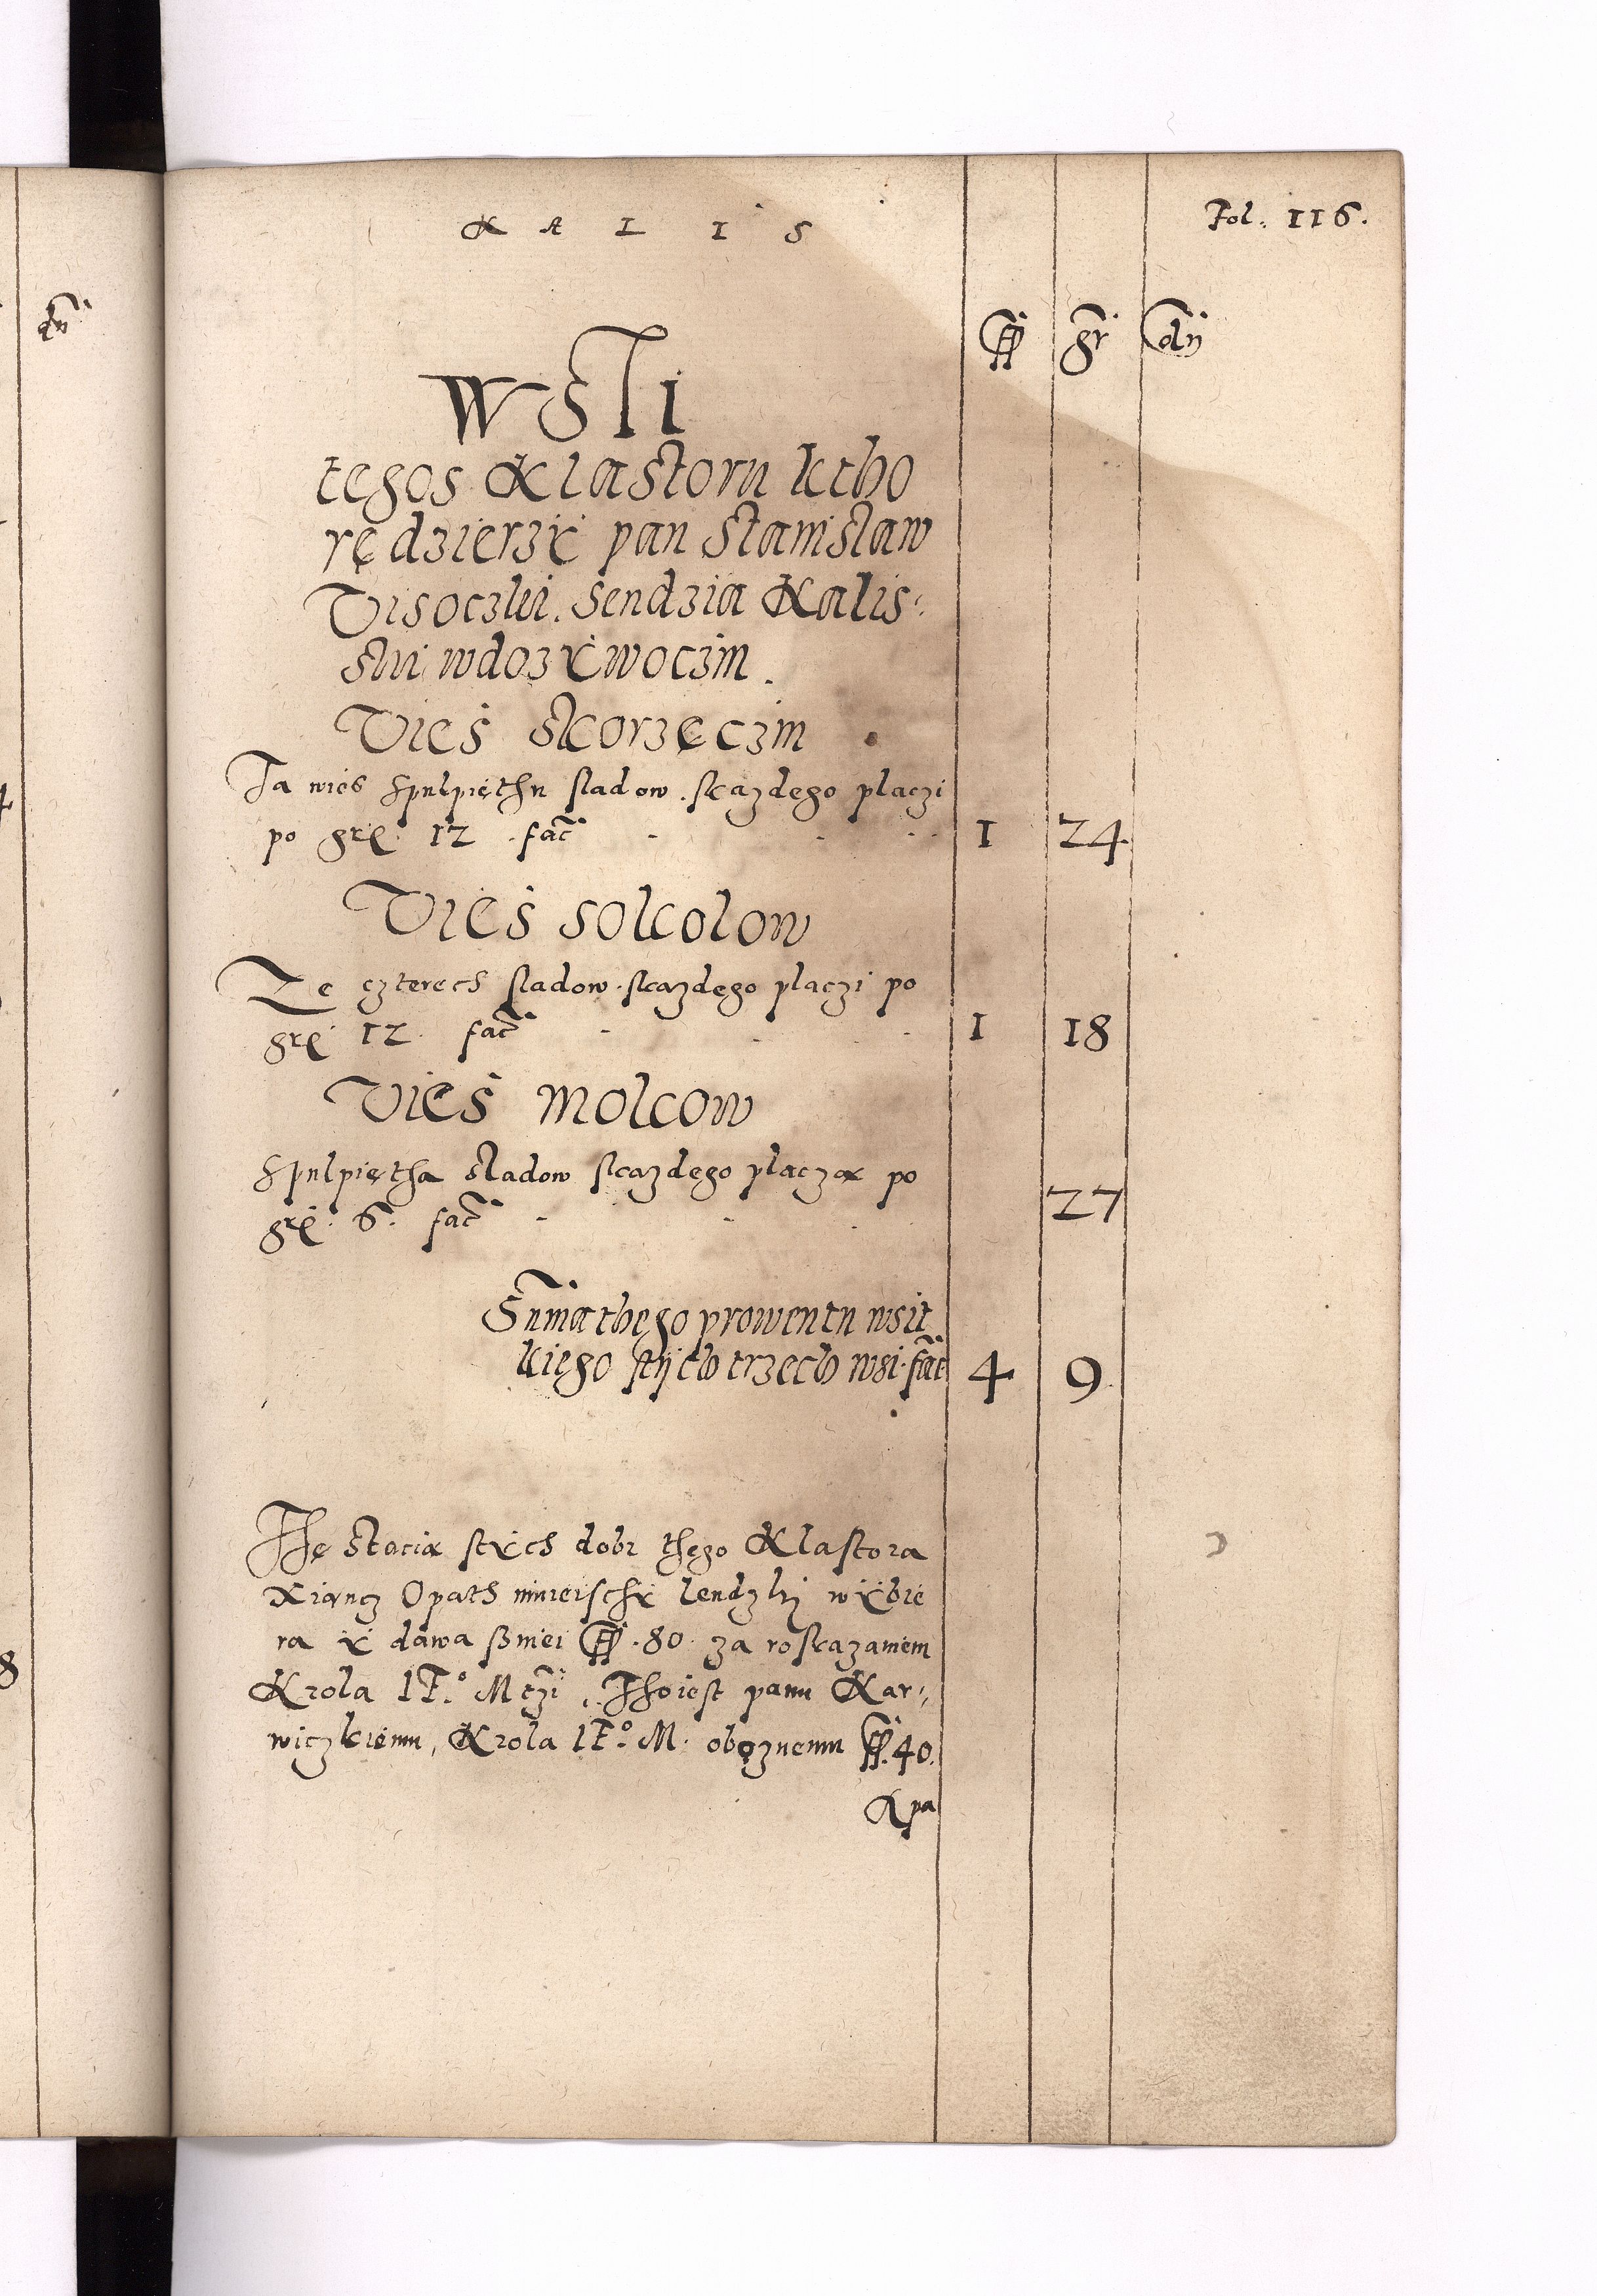 KALIS
Fol. 116.
fl gr dn
WSI
tegos Klastoru ktho
rę dzierzy pan Stanislaw
Visoczki. Sendzia Kalis:
ski wdozywoczin.
Vies Skorzęczin
Ta wies spulpięthu sladow. skazdego placzi
po grę. 12 . fac 1 24
Vies Sokolow
Ze czterech sladow. skazdego placzi po
grę 12. fac 1 18
Vies Molcow
Spulpiętha Sladow skazdego placza po
grę. 6. fac 27
Suma thego prowentu wsit
kiego stych trzech wsi. fac 4 9
The Stacia stych dobr thego Klastora
Xiancz Opath ninieischy lendzki wybie
ra y dawa ßniei fl. 80. za roskazaniem
Krola IE.º Mczi. Tho iest panu Kar:
wiczkiemu, Krola IE.º M. oboznemu fl. 40.
A pa
dn
4
8